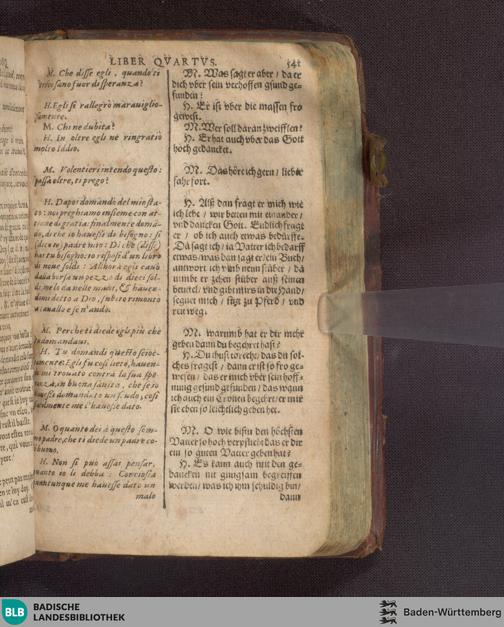 LIBER QVARTVS. 541
M. Che disse egli, quando ti
sano fuor di speranza?
H. Egli si rallegrò marauiglio-
samente.
M. Chi ne dubita?
H. In oltre egli ne ringratiò
molto Iddio.
M. Volentieri intendo questo:
passa oltre, ti prego?
H. Dapoi domandò del mio sta-
to: noi preghiamo insieme con at-
di gratia: finalmente doman-
dò, di che io hauessi di bisogno: si
padre mio: Di che (disse)
hai tu bisogno: io risposi d'un libro
di noue soldi: Allhora egli cauò
dalla borsa un pezzo di dieci sol-
di, me lo da nelle mani, & hauen-
domi detto a Dio, subito rimontò
a cauallo e se n'andò.
M. Perche ti diede egli più che
non domandaui.
H. Tu domandi questo scioc-
camente: Egli fu così lieto, hauen-
mi trouato contra la sua spe-
ranza, in buona sanità, che se io
hauessi domandato un scudo, cosi
facilmente me l'hauesse dato.
M. O quanto dei à questo som-
mo padre, che ti diede un padre co-
si buono.
H. Non si può assai pensar,
quanto io li debba: Conciosia
quantunque me hauesse dato un
malo
M. Was sagt er aber / da er
dich vber sein verhoffen gsund ge-
funden?
H. Er ist vber die massen fro
gewest.
M. Wer soll daran zweifflen?
H. Er hat auch vber das Gott
hoch gedancket.
M. Das hör ich gern / liebe
fahr fort.
H. Alß dan fragt er mich wie
ich lebt / wir betten mit einander /
vnd dancken Gott. Endlich fragt
er / ob ich auch etwas bedürffe.
Da sagt ich / ia Vatter ich bedarff
etwas / was dan sagt er / ein Buch /
antwort ich vmb neun stüber / da
nimbt er zehen stüber auß seinem
beutel / vnd gibt mirs in die Hand /
segnet mich / sitzt zu Pferd / vnd
reit weg.
M. warumb hat er dir mehr
geben dann du begehrt hast?
H. Du thust torecht / das du sol-
ches fragest / dann er ist so fro ge-
wesen / das er mich vber sein hoff-
nung gesund gefunden / das er wann
ich auch ein Cronen begehrt / er mir
sie eben so leichtlich geben het.
M. O wie bistu den höchsten
Vatter so hoch verpflicht das er dir
ein so guten Vatter geben hat?
H. Es kann auch mit den ge-
dancken nit gnugsam begreiffen
werden / was ich ihm schuldig bin /
dann
BLB BADISCHE
LANDESBIBLIOTHEK
Baden-Württemberg